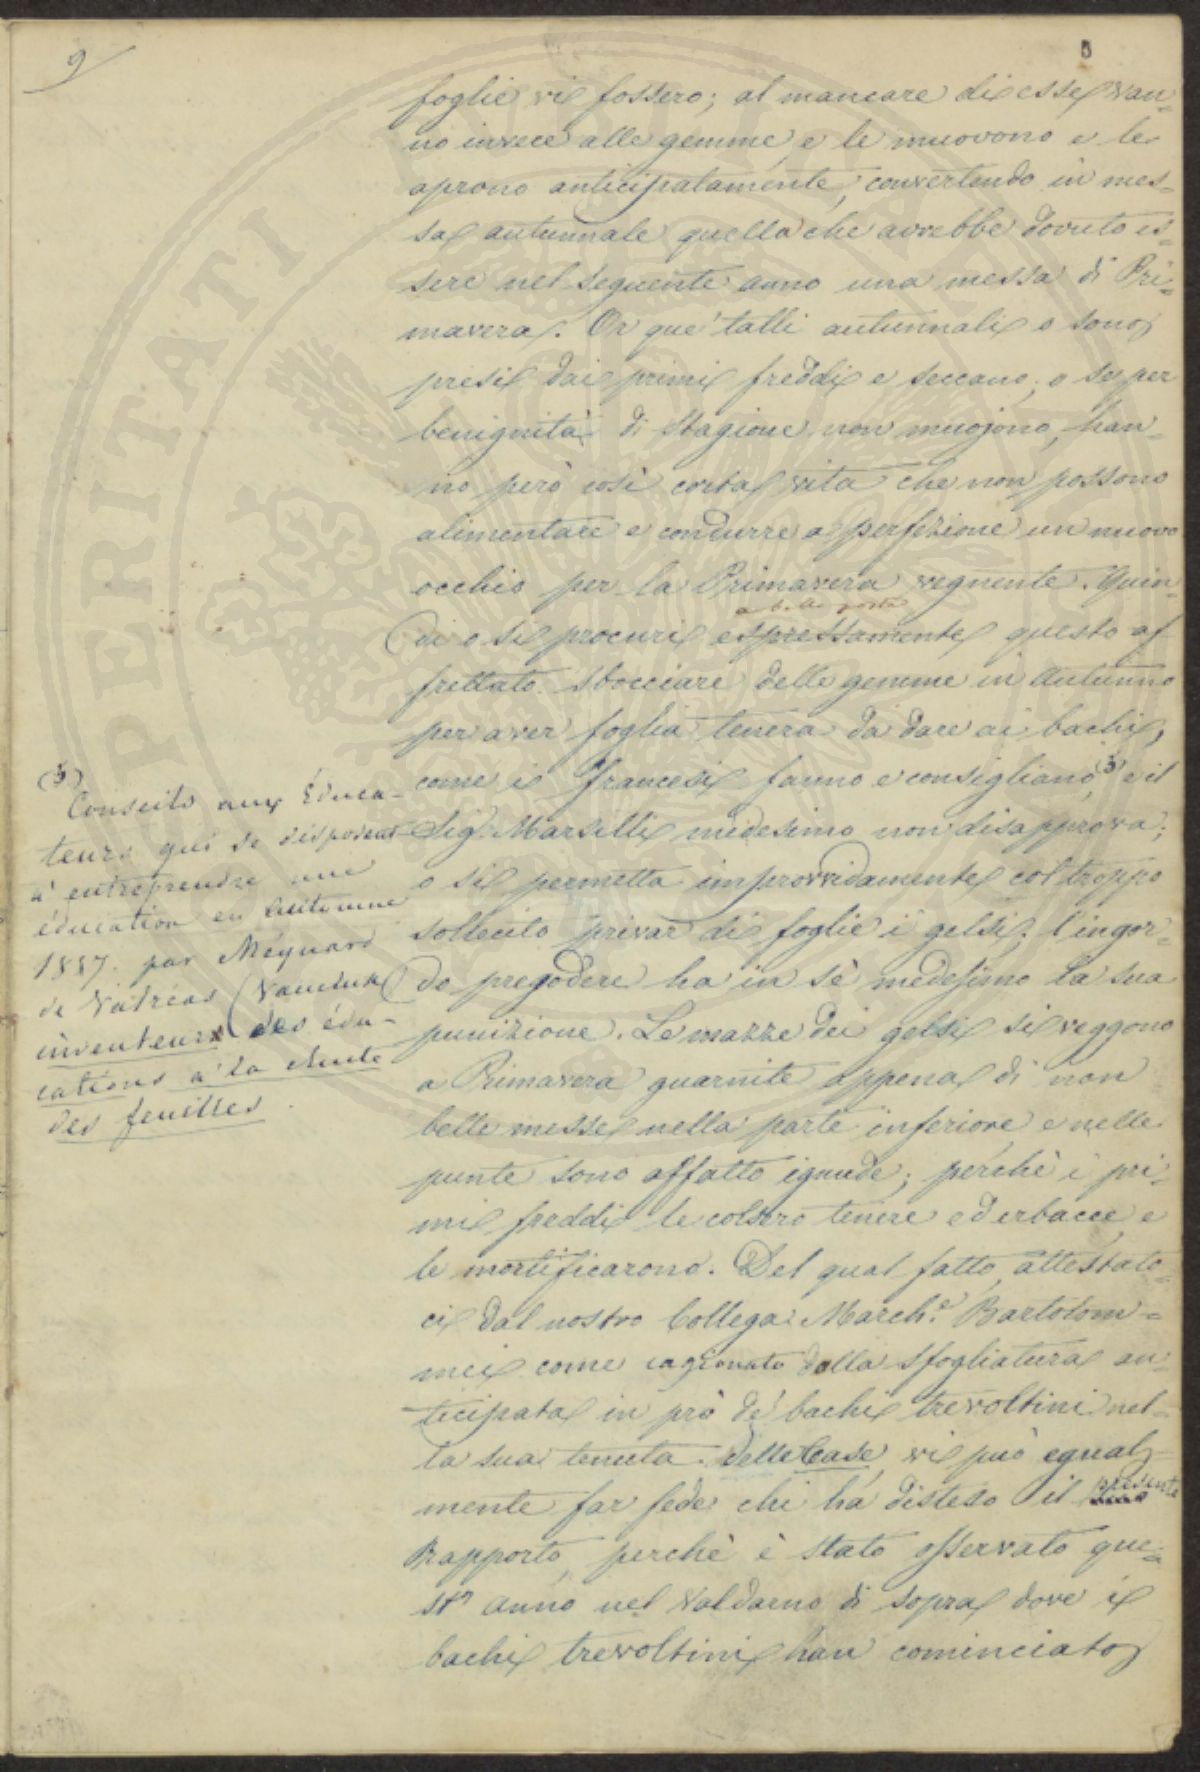 9
foglie vi fossero; al mancare di esse van=
no invece alle gemme, e le muovono e le
aprono anticipatamente, convertendo in mes=
sa autunnale quella che avrebbe dovuto es=
sere nel seguente anno una messa di Pri=
mavera. Or que' talli autunnali o sono
presi dai primi freddi e seccano, o se per
benignità di stagione non muojono, han=
no però così corta vita che non possono
alimentare e condurre a perfezione un nuovo
occhio per la Primavera vegnente. Quin=
a bella posta
di o si procuri espressamente questo af
frettato sbocciare delle gemme in Autunno
per aver foglia tenera da dare ai bachi,
come i Francesi fanno e consigliano (3), e il
Sig. Marsilli medesimo non disapprova;
o si permetta improvvidamente col troppo
sollecito privar di foglie i gelsi; l'ingor=
do pregodere ha in sè medesimo la sua
punizione. Le mazze dei gelsi si veggono
a Primavera guarnite appena di non
belle messe nella parte inferiore, e nelle
punte sono affatto ignude; perchè i pri=
mi freddi le colsero tenere ed erbacee, e
le mortificarono. Del qual fatto, attestato=
ci dal nostro Collega March.e Bartolom=
mei come cagionato dalla sfogliatura an=
ticipata in prò de' bachi trevoltini nel=
la sua tenuta delle Case, vi può egual=
mente far fede chi ha disteso il presente
Rapporto, perchè è stato osservato que=
st' anno nel Valdarno di sopra dove i
bachi trevoltini han cominciato
(3)
Conseils aux Éduca-
teurs qui se disposent
a' entreprendre une
éducation en Automne
1857. par Méynard
de Valréas (Vaucluse)
inventeur des édu-
cations a' la chute
des feuilles